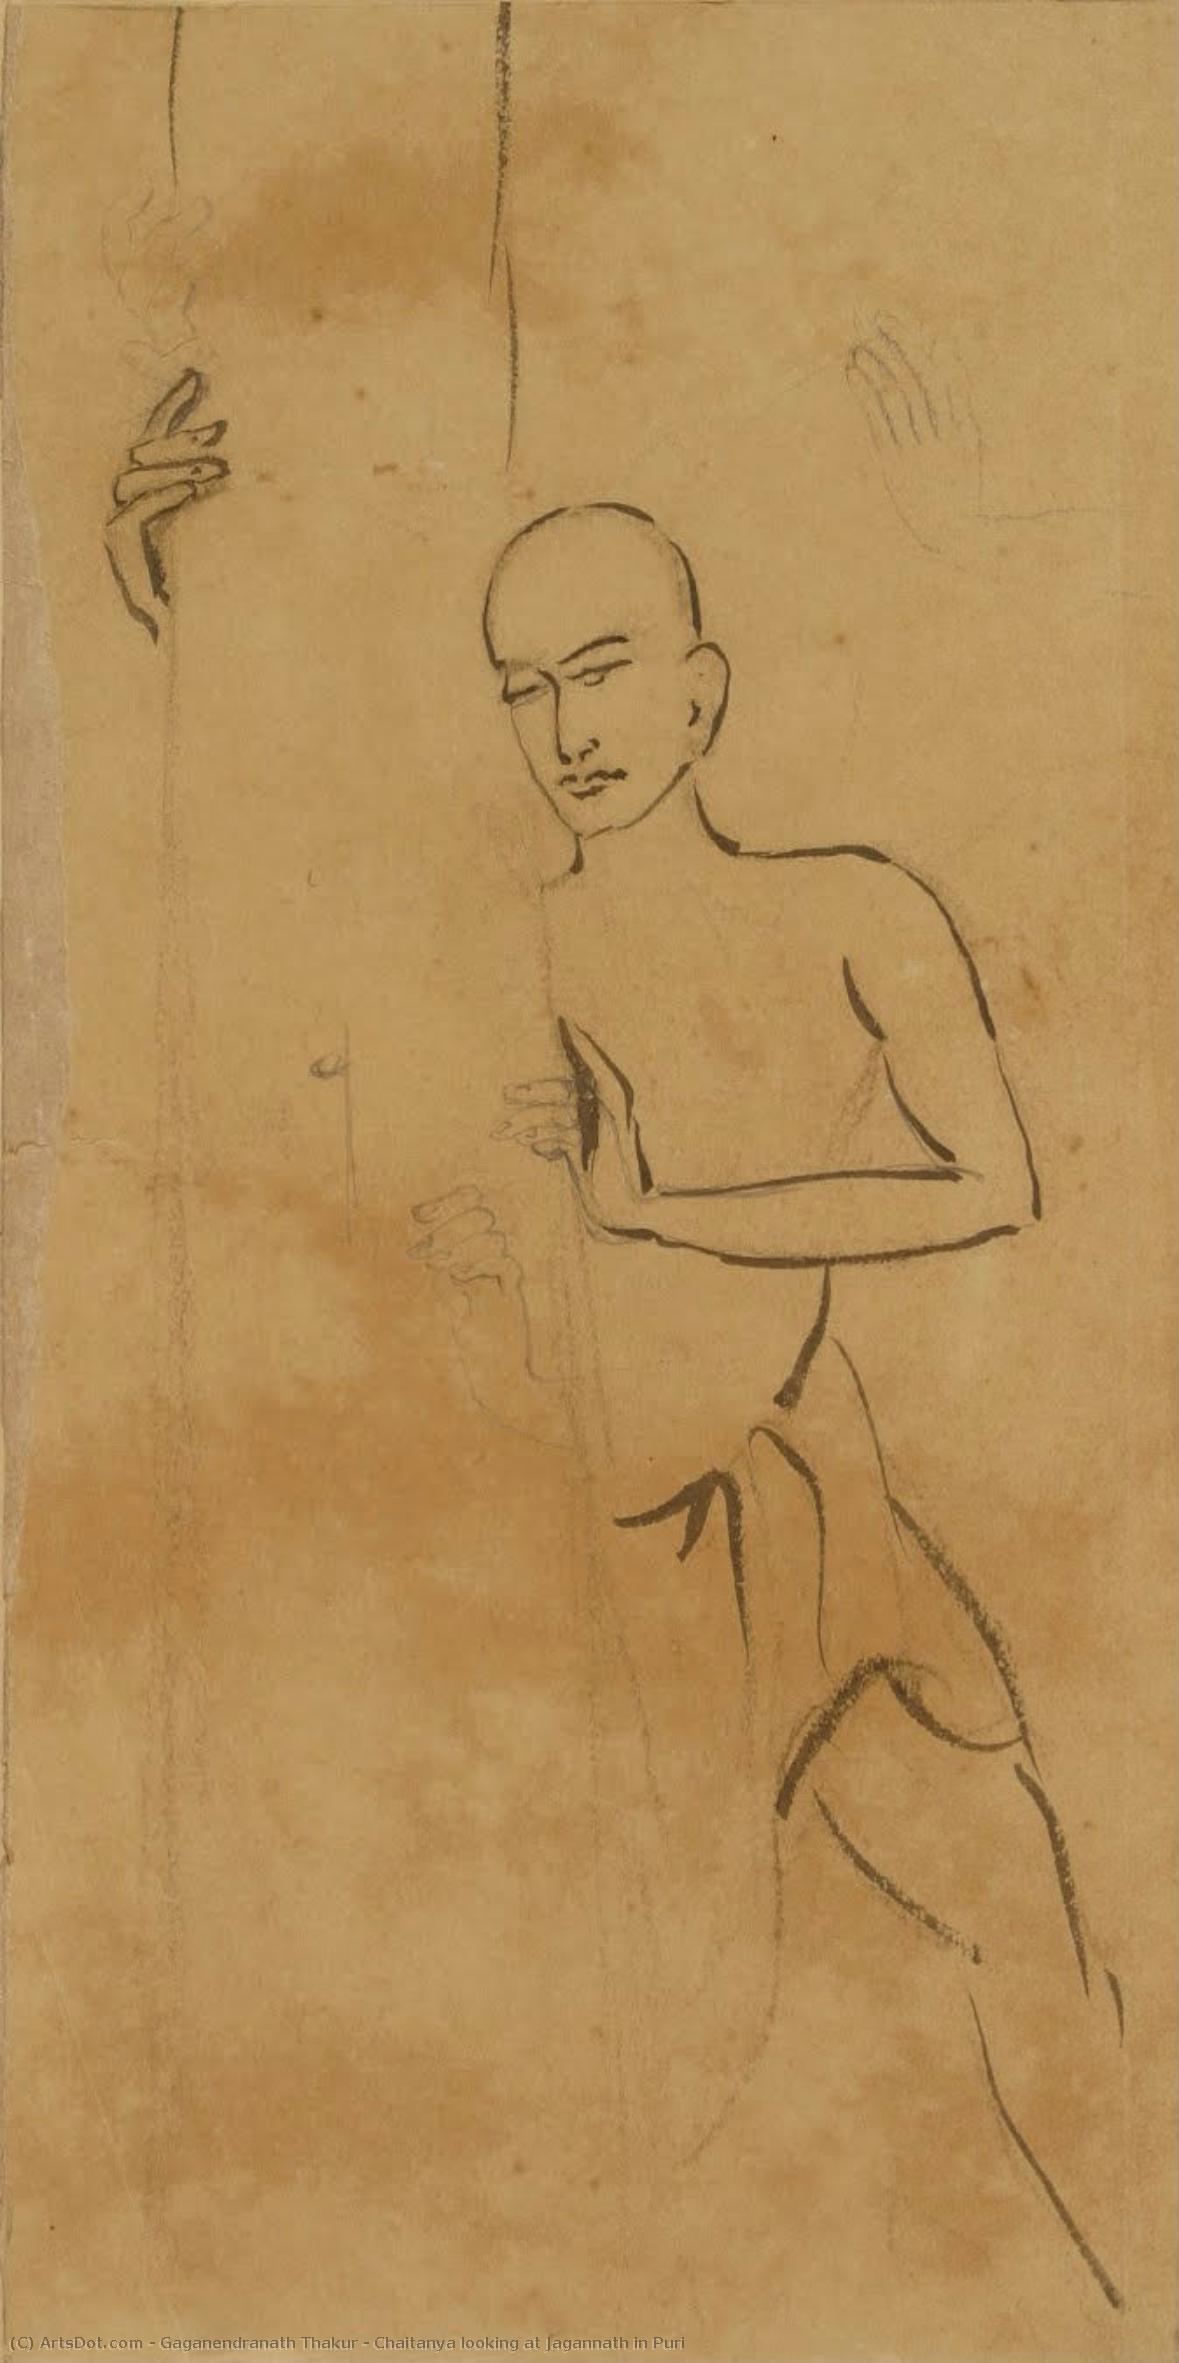 (C) ArtsDot.com - Gaganendranath Thakur - Chaitanya looking at Jagannath in Puri